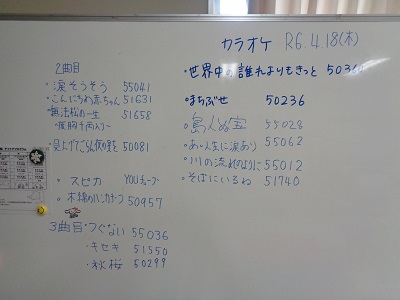 カラオケ R6.4.18(木)
2曲目
・涙そうそう 55041
・こんにちわ赤ちゃん 51631
・無法松の一生 51658
~度胸千両入り~
・見上げてごらん夜の星を 50081
・スピカ YOUチューブ
・木綿のハンカチーフ 50957
3曲目・つぐない 55036
・キセキ 51550
・秋桜 50299
・世界中の誰よりもきっと
・まちぶせ 50236
・島人ぬ宝 55028
・あゝ人生に涙あり 55062
・川の流れのように 55012
・そばにいるね 51740